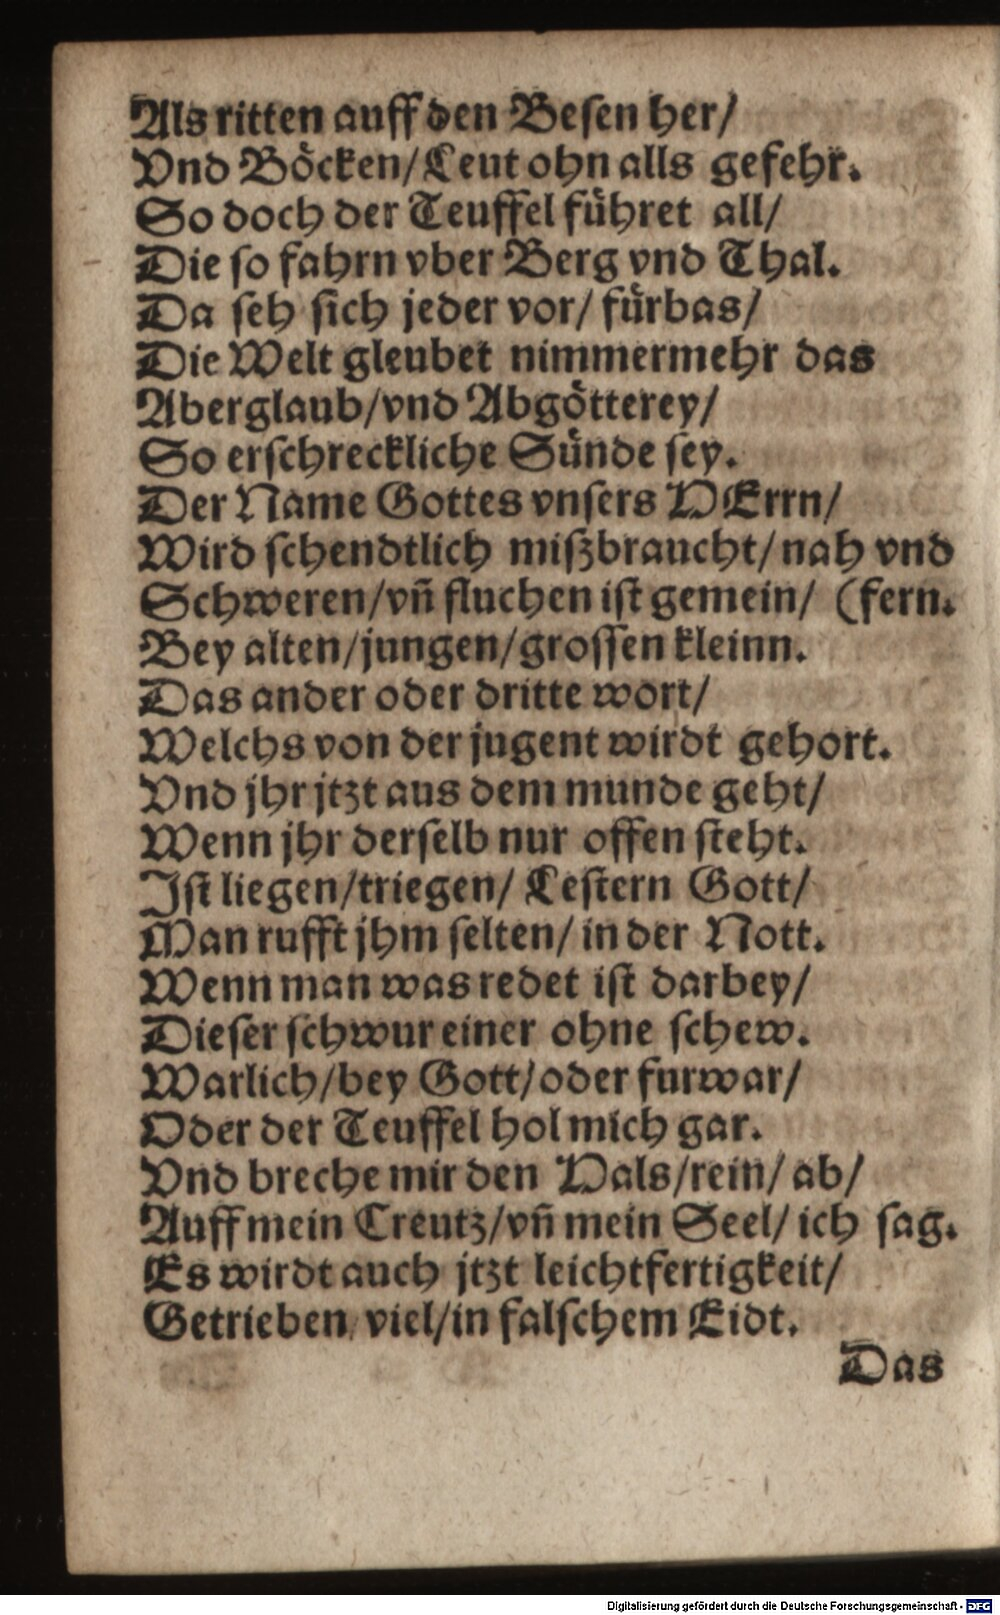 Als ritten auff den Besen her/
Vnd Böcken/Leut ohn alls gefehr.
So doch der Teuffel führet all/
Die so fahrn vber Berg vnd Thal.
Da seh sich jeder vor/ fürbas/
Die Welt gleubet nimmermehr das
Aberglaub/vnd Abgötterey/
So erschreckliche Sünde sey.
Der Name Gottes vnsers HErrn/
Wird schendtlich miszbraucht/nah vnd
Schweren/vn̄ fluchen ist gemein/ (fern.
Bey alten/jungen/grossen kleinn.
Das ander oder dritte wort/
Welchs von der jugent wirdt gehort.
Vnd jhr jtzt aus dem munde geht/
Wenn jhr derselb nur offen steht.
Ist liegen/triegen/ Lestern Gott/
Man rufft jhm selten/ in der Nott.
Wenn man was redet ist darbey/
Dieser schwur einer ohne schew.
Warlich/bey Gott/oder furwar/
Oder der Teuffel hol mich gar.
Vnd breche mir den Hals/rein/ ab/
Auff mein Creutz/vn̄ mein Seel/ ich sag.
Es wirdt auch jtzt leichtfertigkeit/
Getrieben viel/in falschem Eidt.
Das
Digitalisierung gefördert durch die Deutsche Forschungsgemeinschaft - DFG